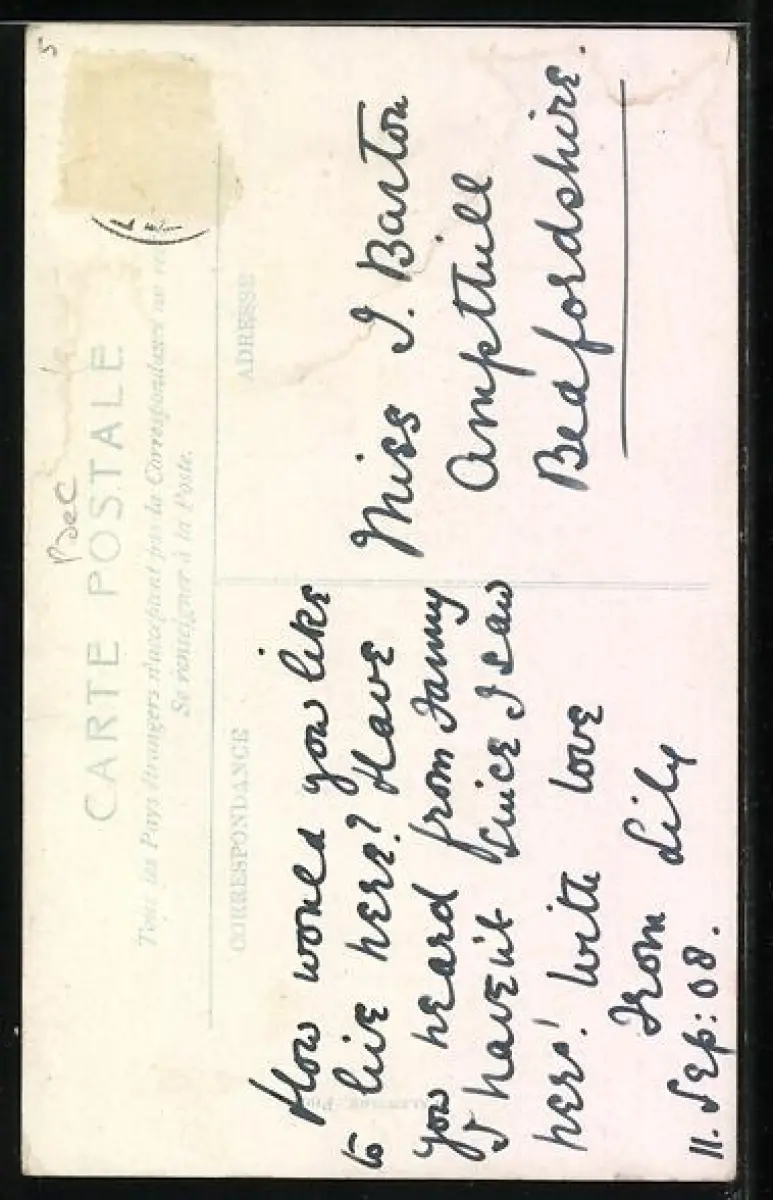 CARTE POSTALE
Tous les Pays étrangers n'acceptent pas la Correspondance au
Se renseigner à la Poste.
CORRESPONDANCE
ADRESSE
How would you like
to live here? Have
you heard from Fanny
I haven't since I saw
her! With love
From Lily
11. Sep: 08.
Miss J. Barton
Ampthill
Bedfordshire.
5